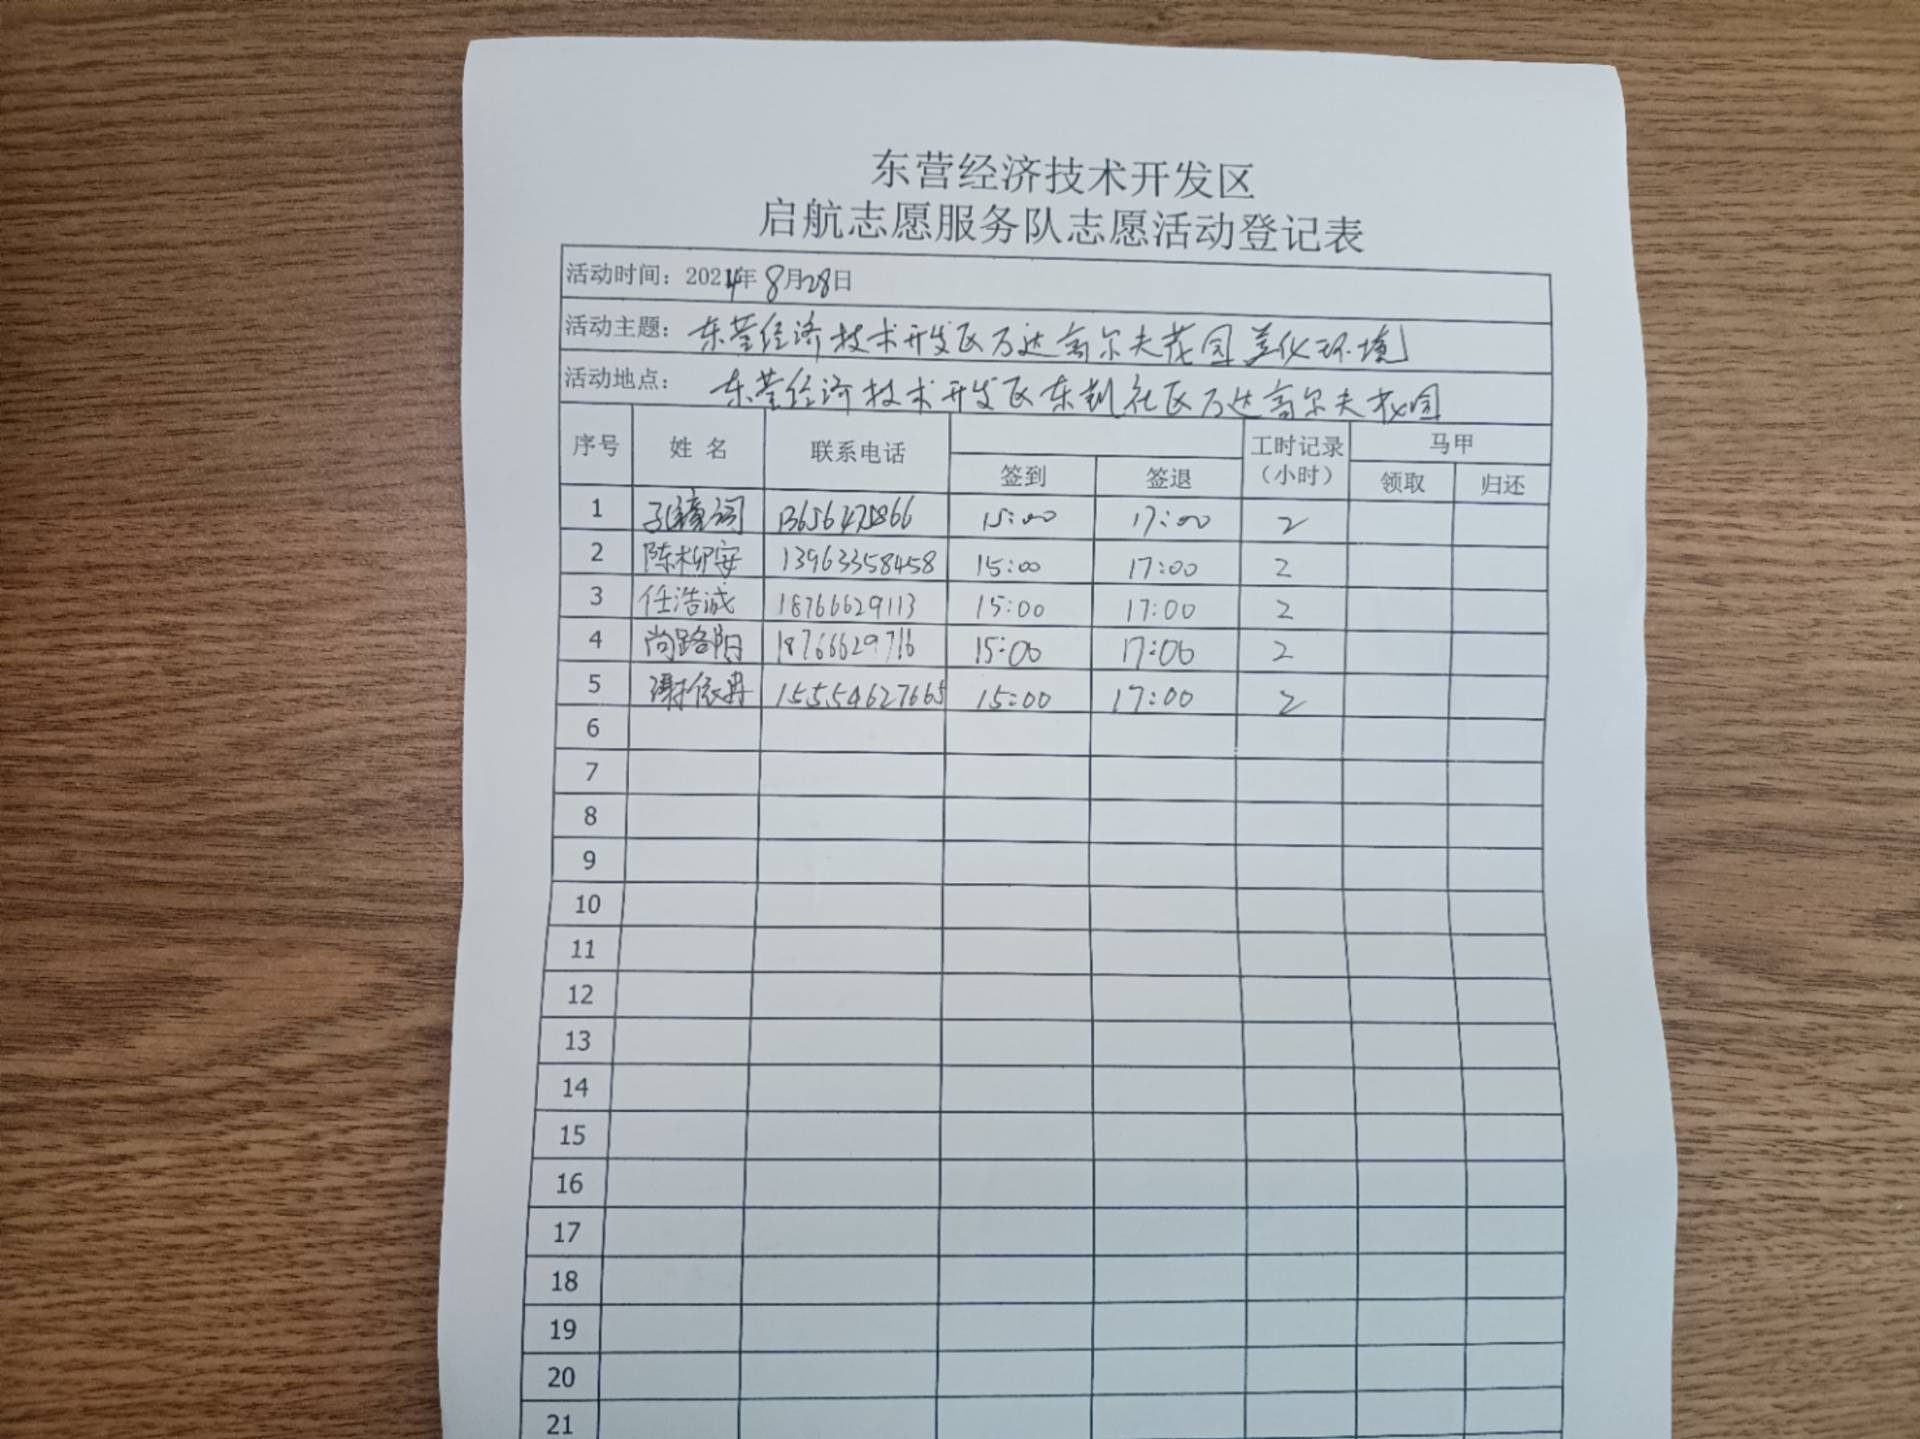 东营经济技术开发区
启航志愿服务队志愿活动登记表
活动时间：2024年8月28日
活动主题：东营经济技术开发区万达高尔夫花园美化环境
活动地点：东营经济技术开发区东凯社区万达高尔夫花园
序号 姓 名 联系电话 签到 签退 工时记录（小时） 马甲 领取 归还
1 15:00 17:00 2
2 陈柳安 13963358458 15:00 17:00 2
3 任浩诚 18766629113 15:00 17:00 2
4 尚路阳 18766629716 15:00 17:00 2
5 谢依丹 15554627665 15:00 17:00 2
6
7
8
9
10
11
12
13
14
15
16
17
18
19
20
21